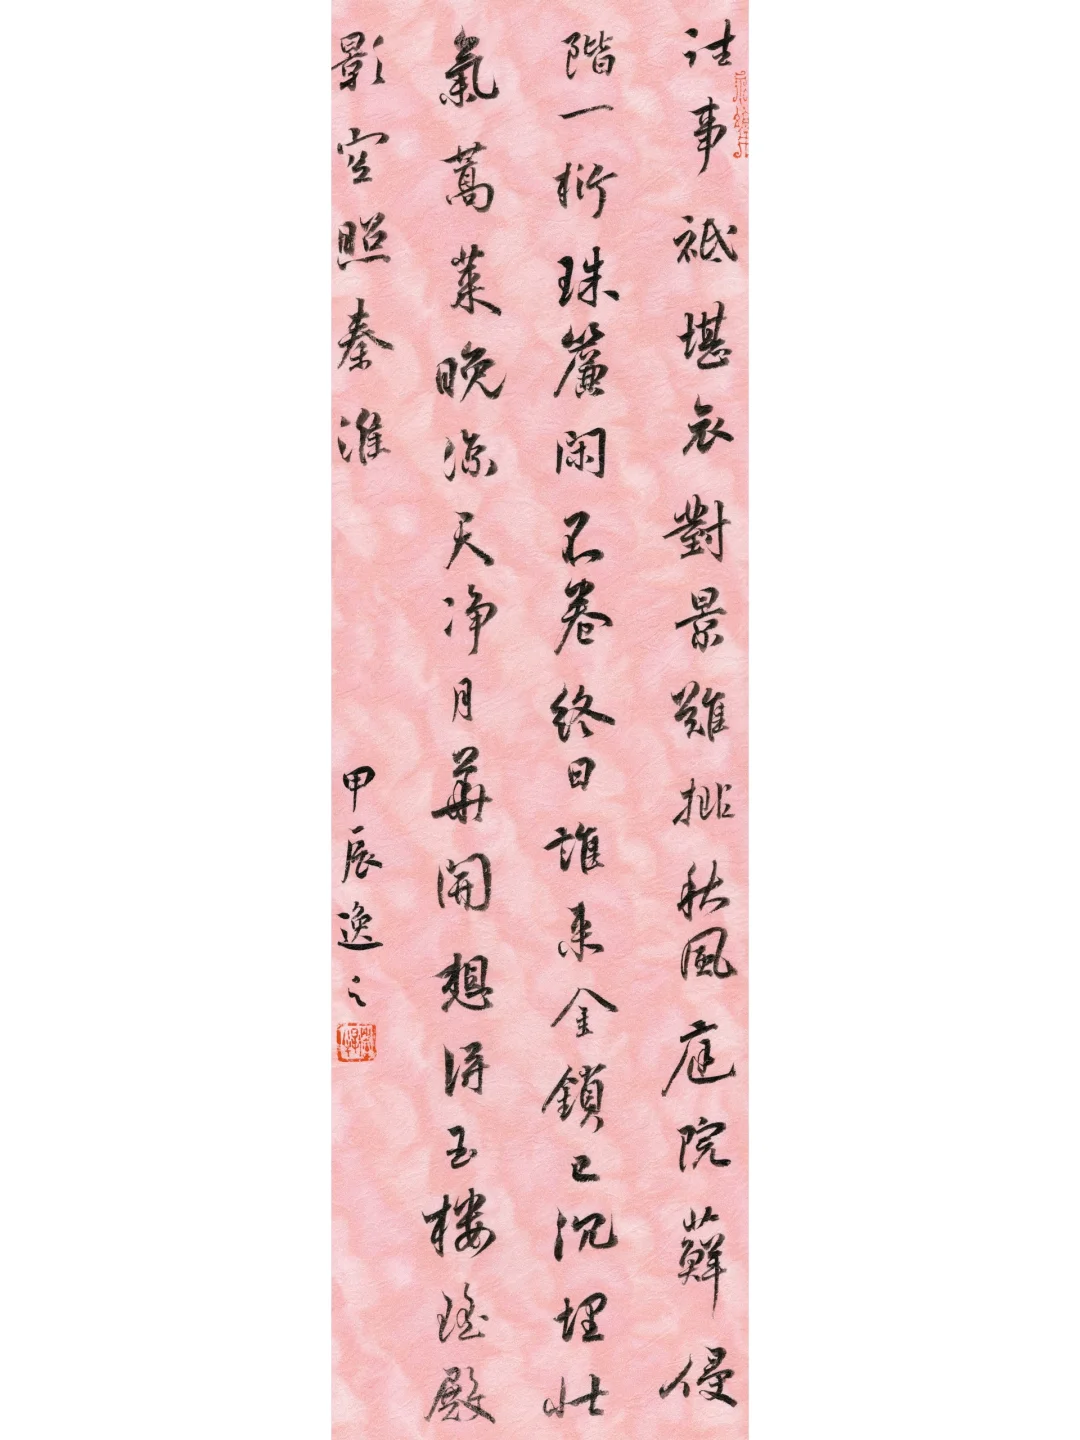 往事祗堪哀對景難排秋風庭院蘚侵
階一桁珠簾閑不卷終日誰来金鎖已沉埋壯
氣蒿萊晚涼天净月華開想得玉樓瑤殿
影空照秦淮
甲辰逸之